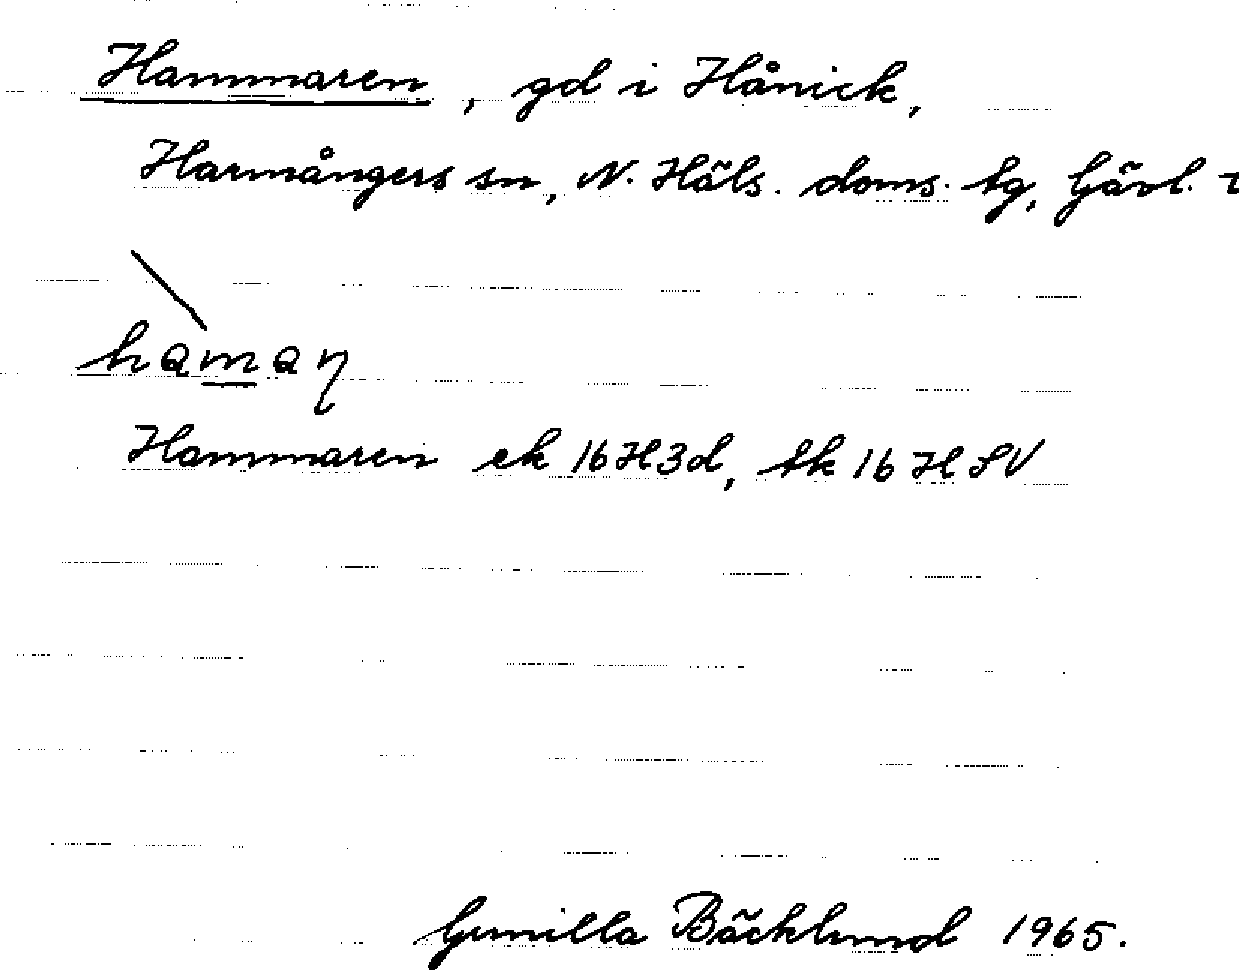 Hammaren, gd i Hånick,
Harmångers sn, N. Häls. doms. tg, Gävl.
hamaη
Hammaren ek 16H3d, tk 16 H SV
Gunilla Bäcklund 1965.